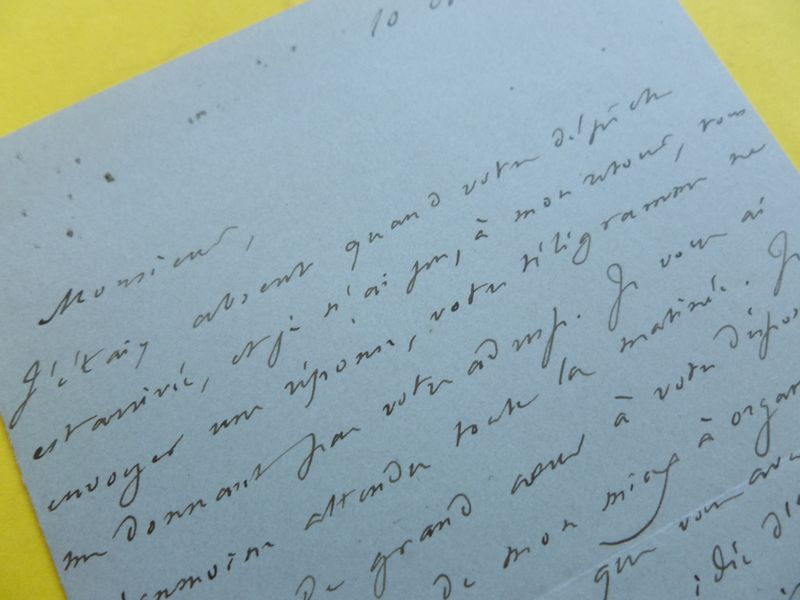 10
Monsieur,
J'étais absent quand votre dépêche
est arrivée, et je n'ai pu, à mon retour, vous
envoyer une réponse, votre télégramme ne
me donnant pas votre adresse. Je vous ai
néanmoins attendu toute la matinée. Je
de grand cœur à votre dispos
de mon mieux à organ
que vous avez
idée d'